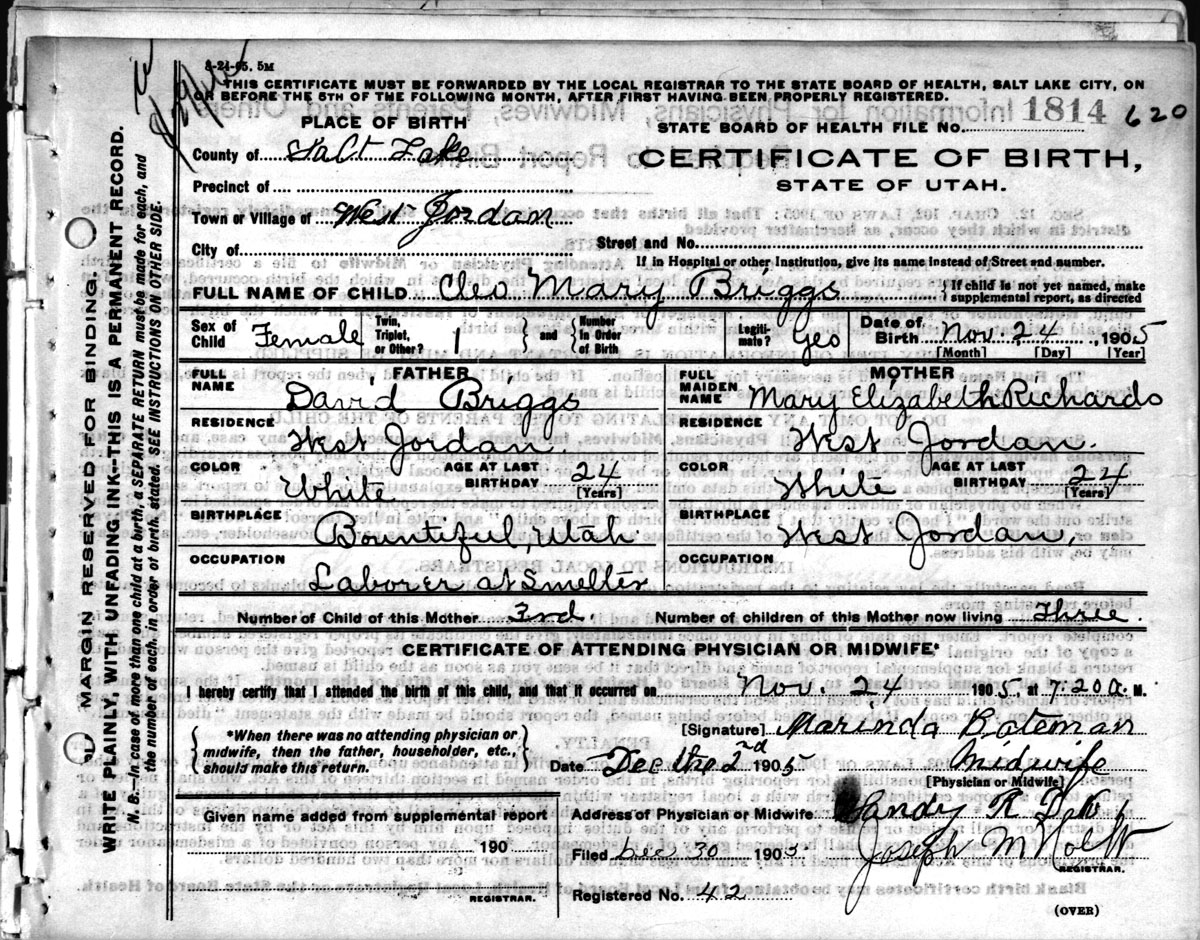 8-21-05. 5M
THIS CERTIFICATE MUST BE FORWARDED BY THE LOCAL REGISTRAR TO THE STATE BOARD OF HEALTH, SALT LAKE CITY, ON
OR BEFORE THE 5TH OF THE FOLLOWING MONTH, AFTER FIRST HAVING BEEN PROPERLY REGISTERED.
PLACE OF BIRTH
STATE BOARD OF HEALTH FILE No. 1814 620
County of Salt Lake
CERTIFICATE OF BIRTH,
STATE OF UTAH.
Precinct of
Town or Village of West Jordan
City of
Street and No.
If in Hospital or other Institution, give its name instead of Street and number.
FULL NAME OF CHILD Cleo Mary Briggs { If child is not yet named, make
supplemental report, as directed
Sex of Child Female Twin, Triplet, or Other? 1 } and { Number in Order of Birth Legiti- mate? Yes Date of Birth Nov. 24, 1905
[Month] [Day] [Year]
FATHER
FULL NAME David Briggs
RESIDENCE West Jordan.
COLOR White AGE AT LAST BIRTHDAY 24 [Years]
BIRTHPLACE Bountiful, Utah
OCCUPATION Laborer at Smelter
MOTHER
FULL MAIDEN NAME Mary Elizabeth Richards
RESIDENCE West Jordan.
COLOR White AGE AT LAST BIRTHDAY 24 [Years]
BIRTHPLACE West Jordan,
OCCUPATION
Number of Child of this Mother 3rd. Number of children of this Mother now living Three.
CERTIFICATE OF ATTENDING PHYSICIAN OR MIDWIFE*
I hereby certify that I attended the birth of this child, and that it occurred on Nov. 24 1905, at 7.20 a. M.
{ *When there was no attending physician or
midwife, then the father, householder, etc.,
should make this return. }
[Signature] Marinda Bateman
Date Dec the 2nd 1905 Midwife
[Physician or Midwife]
Given name added from supplemental report
190
REGISTRAR.
Address of Physician or Midwife Sandy R. D. No 1
Filed Dec 30 1905. Joseph M Holt
REGISTRAR.
Registered No. 42
(OVER)
MARGIN RESERVED FOR BINDING.
WRITE PLAINLY, WITH UNFADING INK--THIS IS A PERMANENT RECORD.
N. B.--In case of more than one child at a birth, a SEPARATE RETURN must be made for each, and
the number of each, in order of birth, stated. SEE INSTRUCTIONS ON OTHER SIDE.